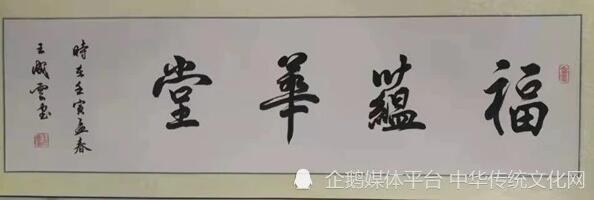 福蘊華堂
時在壬寅孟春
王成雲書
企鹅媒体平台 中华传统文化网